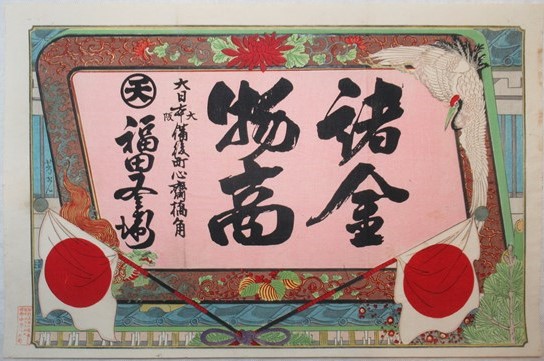 諸金
物商
大日本大阪備後町心齋橋角
天
福田